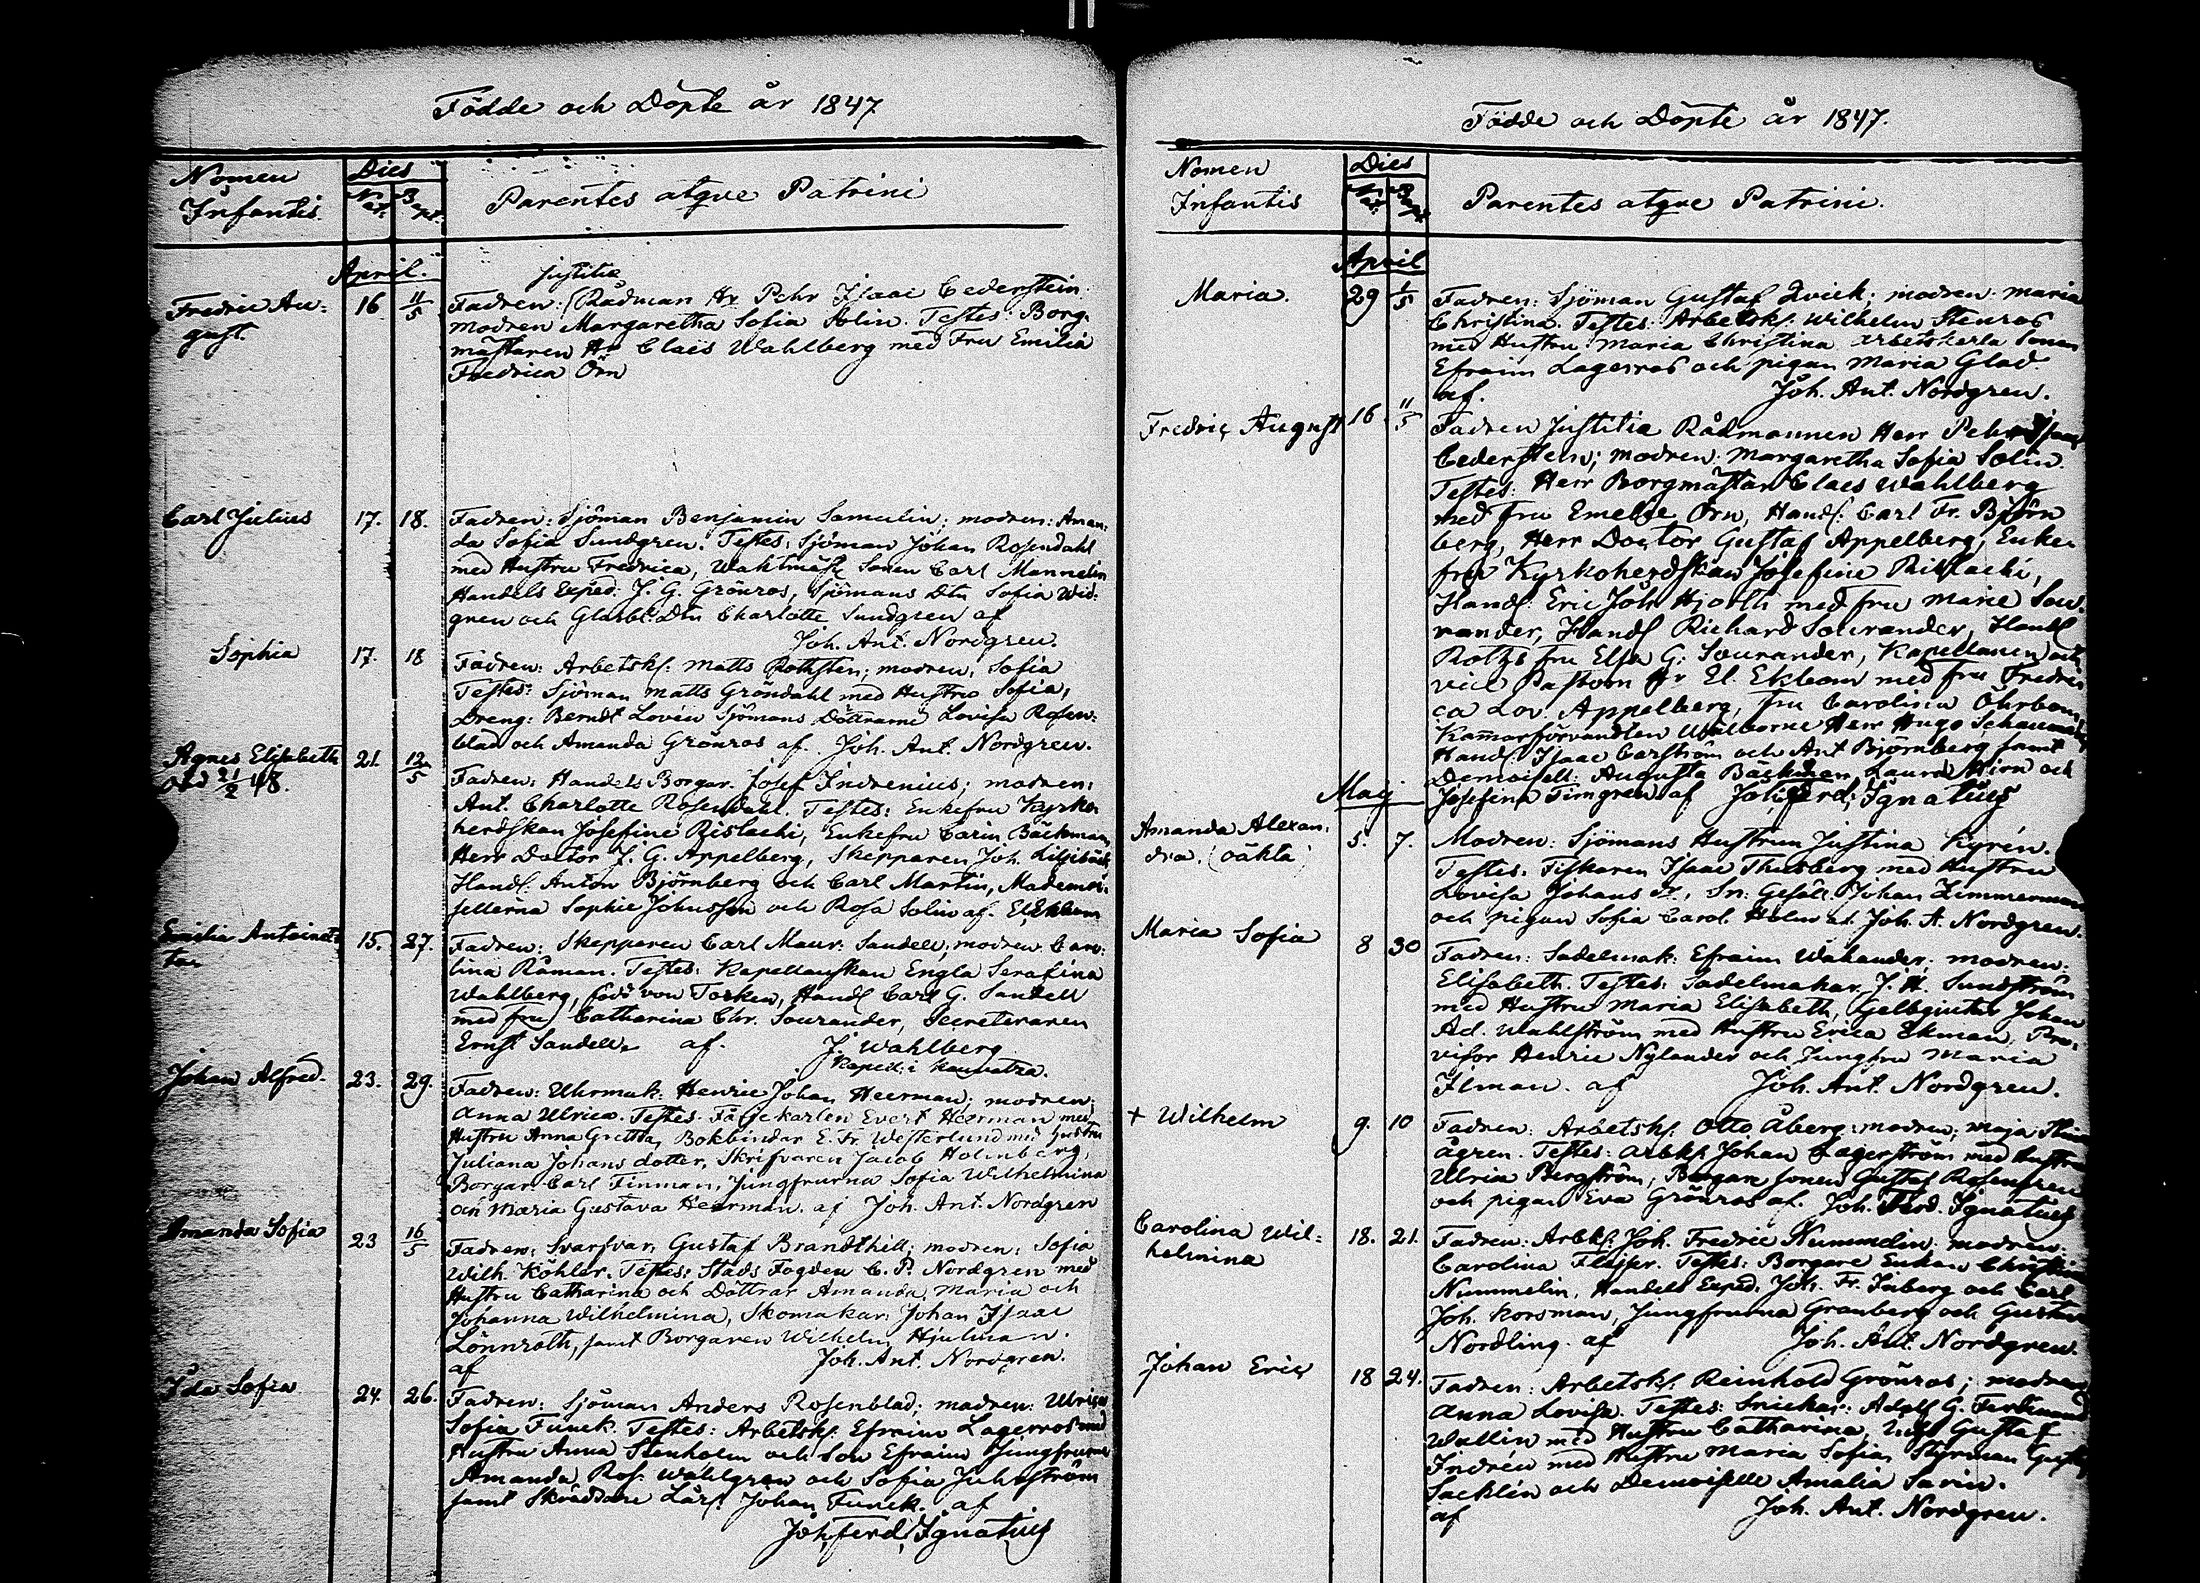 Födde och Döpte år 1847
Nomen Infantis
Dies
Nat. Bapt.
Parentes atqve Patrini
April.
Fredric Au-
gust.
16 11/5
justitiæ
Fadren: (Rådman Hr Pehr Isaac Cederstein
modren Margaretha Sofia Solin. Testes: Borg-
mästaren Hr Claës Wahlberg med Fru Emilia
Fredrica Örn
Carl Julius
17. 18.
Fadren: Sjöman Benjamin Samulin; modren: Aman-
da Sofia Sundgren. Testes: Sjöman Johan Rosendahl
med Hustru Fredrica, Waktmäst. Sonen Carl Mannelin
Handels Exped: J. G. Grönros, Sjömans Dtn Sofia Wid-
gren och Glasbl: Dtn Charlotte Sundgren af
Joh. Ant. Nordgren.
Sophia
17. 18
Fadren: Arbetsk. Matts Rothsten; modren, Sofia
Testes: Sjöman Matts Gröndahl med Hustru Sofia,
Dreng: Berndt Lovén Sjömans Döttrarne Lovisa Rosen-
blad och Amanda Grönros af. Joh. Ant. Nordgren.
Agnes Elisabeth
död 21/2 48.
21. 12/5
Fadren: Handels Borgar. Josef Indrenius; modren:
Ant. Charlotte Rosendahl. Testes: Enkefru Kyrko-
herdskan Josefine Rislachi, Enkefru Carin Bäckman,
Herr Doctor J. G. Appelberg, Skepparen Joh. Liljebäck,
Handl. Anton Björnberg och Carl Martin, Mademoi-
sellerna Sophie Johnsson och Rosa Solin af. El. Ekbom
Emilia Antoinet-
ta
15. 27.
Fadren: Skepparen Carl Maur. Sandell; modren Caro-
lina Råman. Testes: Kapellanskan Engla Serafina
Wahlberg, född von Torken, Handl Carl G. Sandell
med fru Catharina Chr. Sourander, Secreteraren
Ernst Sandell. af. J. Wahlberg
Kapell: i
Johan Alfred.
23. 29.
Fadren: Uhrmak: Henric Johan Heerman; modren:
Anna Ulrica. Testes: Färjekarlen Evert Heerman med
Hustru Anna Gretha, Bokbindar E. Fr. Westerlund med hustru
Juliana Johans dotter, Skrifvaren Jacob Holmberg,
Borgar: Carl Finman, Jungfrurna Sofia Wilhelmina
och Maria Gustava Heerman. af Joh. Ant. Nordgren
Amanda Sofia
23 16/5
Fadren: Svarfvar: Gustaf Brandthill; modren: Sofia
Wilh. Köhler. Testes: Stads Fogden C. P. Nordgren med
Hustru Catharina och Döttrar Amanda Maria och
Johanna Wilhelmina, Skomakar: Johan Isaac
Lönnroth, samt Borgaren Wilhelm Hjulman.
af Joh. Ant. Nordgren.
Ida Sofia
24. 26.
Fadren: Sjöman Anders Rosenblad; modren: Ulrica
Sofia Funck. Testes: Arbetsk. Efraim Lagerros med
Hustru Anna Stenholm och Son Efraim Jungfrurna
Amanda Ros. Wahlgren och Sofia Juhlström
samt Skräddare Lärl. Johan Funck. af
Joh. Ferd. Ignatius
Födde och Döpte år 1847.
Nomen Infantis
Dies
Nat. Bapt.
Parentes atqve Patrini.
April
Maria.
29 1/5
Fadren: Sjöman Gustaf Qvick; modren Maria
Christina. Testes: Arbetsk. Wilhelm Stenros
med Hustru Maria Christina Arbetskarls Sonen
Efraim Lagerros och pigan Maria Glad.
af. Joh. Ant. Nordgren.
Fredric August
16 11/5
Fadren Justitiæ Rådmannen Herr Pehr Isaac
Cederstein; modren: Margaretha Sofia Solin.
Testes: Herr Borgmästar Claës Wahlberg
med fru Emelie Örn, Handl: Carl Fr. Björn
berg, Herr Doctor Gustaf Appelberg, Enke-
fru Kyrkoherdskan Josefine Rislachi,
Handl. Eric Joh. Hjorth med fru Marie Sou-
rander, Handl Richard Sourander, Handl
Rothes fru Elsa G. Sourander, Kapellanen och
vice Pastorn Hr El. Ekbom med fru Fredri-
ca Lov. Appelberg, fru Carolina Öhrbom,
Kammarförvandten Wälborne Herr Hugo Schauman
Handl. Isaac Carström och Ant Björnberg samt
Demoisell: Augusta Bäckman, Laura Hirn och
Josefina Timgren. af Joh. Ferd. Ignatius
Maj
Amanda Alexan-
dra. (oäkta)
5. 7.
Modren: Sjömans Hustrun Justina Kyrén.
Testes: Fiskaren Isaac Thusberg med Hustru
Lovisa Johans Dr, Sn: Gesäll Johan Zimmerman
och pigan Sofia Carol. Holm af. Joh. A. Nordgren.
Maria Sofia
8 30
Fadren: Sadelmak: Efraim Wåhander; modren:
Elisabeth. Testes: Sadelmakar. J. H. Sundström
med Hustru Maria Elisabeth, Gelbgjuter Johan
Ad. Wahlström med Hustru Erica Ekman, Pro-
visor Henric Nylander och Jungfru Maria
Ilman. af Joh. Ant. Nordgren.
+ Wilhelm
9. 10
Fadren: Arbetsk. Otto Åberg; modren: Maja Stina
Ågren. Testes: Arbk. Johan Lagerström med Hustru
Ulrica Bergström, Borgare sonen Gustaf Rosengren
och pigan Eva Grönros af. Joh. Ferd. Ignatius
Carolina Wil-
helmina
18. 21.
Fadren: Arbk. Joh. Fredric Nummelin; modren:
Carolina Flöjer. Testes: Borgare Enkan Christina
Nummelin, Handels Exped. Joh. Fr. Inberg och Carl
Joh. Korsman, Jungfrurna Granberg och Gustava
Nordling. af Joh. Ant. Nordgren.
Johan Eric
18 24.
Fadren: Arbetsk. Reinhold Grönros; modren
Anna Lovisa. Testes: Snickar: Adolf G. Ferdinand
Wallin med Hustru Catharina, Gustaf
Indren med Hustru Maria Sofia, Styrman Gustaf
Sacklén och Demoiselle Amalia Savin.
af Joh. Ant. Nordgren.